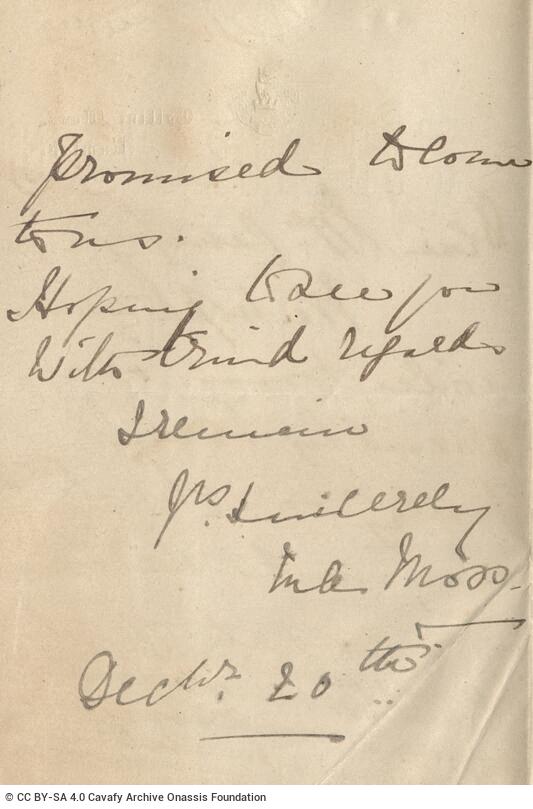 promised to come
to us.
Hoping to see you
With kind regards
I remain
Yrs. Sincerely
Moss
Decbr. 20th
© CC BY-SA 4.0 Cavafy Archive Onassis Foundation